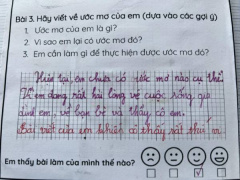 Bài 3. Hãy viết về ước mơ của em (dựa vào các gợi ý)
1. Ước mơ của em là gì?
2. Vì sao em lại có ước mơ đó?
3. Em cần làm gì để thực hiện được ước mơ đó?
Hiện tại em chưa có ước mơ nào cụ thể
Vì em đang rất hài lòng về cuộc sống gia
đình em, về bạn bè và thầy cô em.
Bài viết của em khiến cô thấy rất thú vị
Em thấy bài làm của mình thế nào?